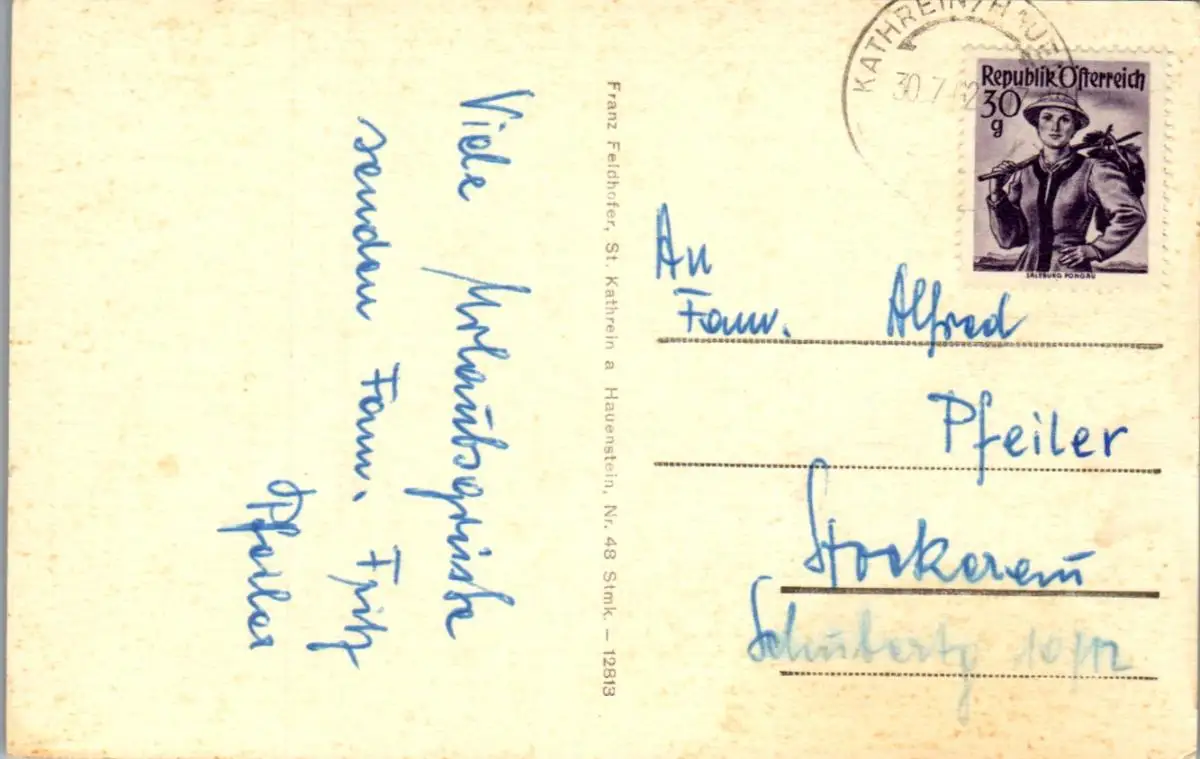 Viele Urlaubsgrüsse
senden Fam. Fritz
Pfeiler
Franz Feldhofer, St. Kathrein a Hauenstein, Nr. 48 Stmk. – 12813
KATHREIN/HAUE
30.7.
Republik Österreich
30
g
SALZBURG PONGAU
An
Fam. Alfred
Pfeiler
Stockerau
Schubertg 10/12